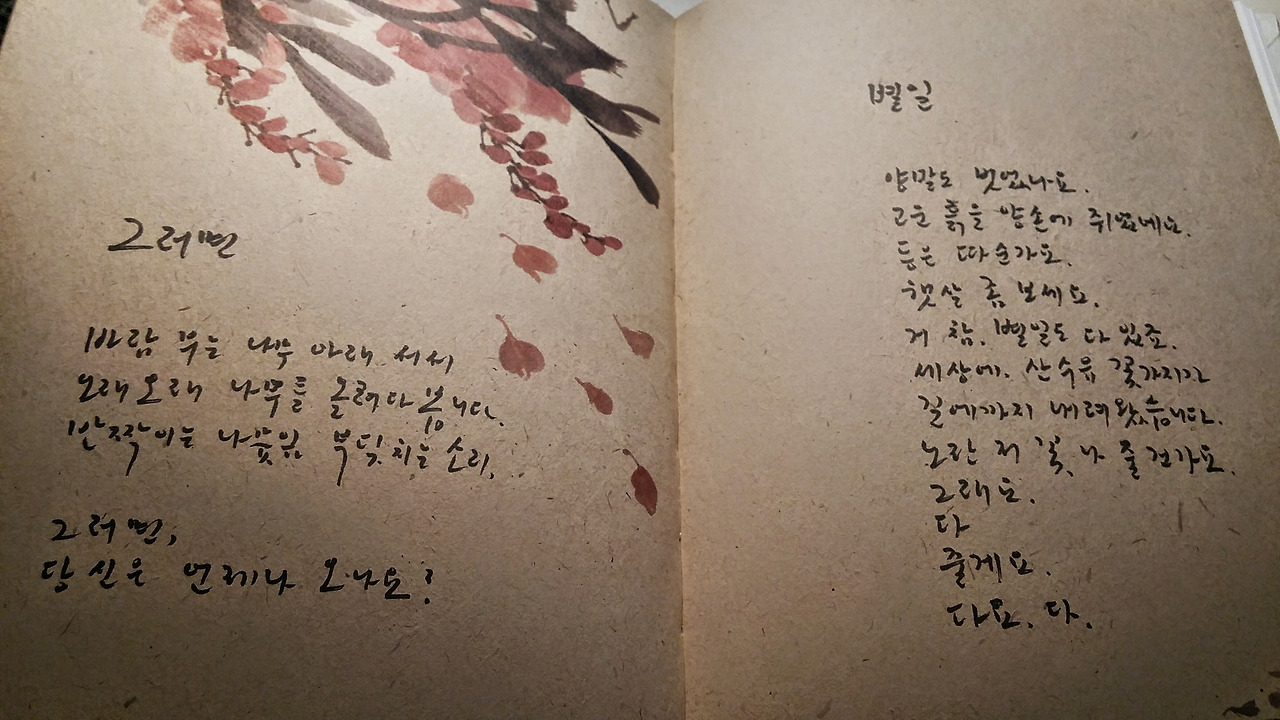 그러면
바람 부는 나무 아래 서서
오래오래 나무를 올려다 봅니다.
반짝이는 나뭇잎 부딪치는 소리,
그러면,
당신은 언제나 오나요?
별일
양말도 벗었나요.
고운 흙을 양손에 쥐었네요.
등은 따순가요.
햇살 좀 보세요.
거 참, 별일도 다 있죠.
세상에. 산수유 꽃가지가
길에까지 내려왔습니다.
노란 저 꽃, 나 줄 건가요.
그래요.
다
줄게요.
다요. 다.